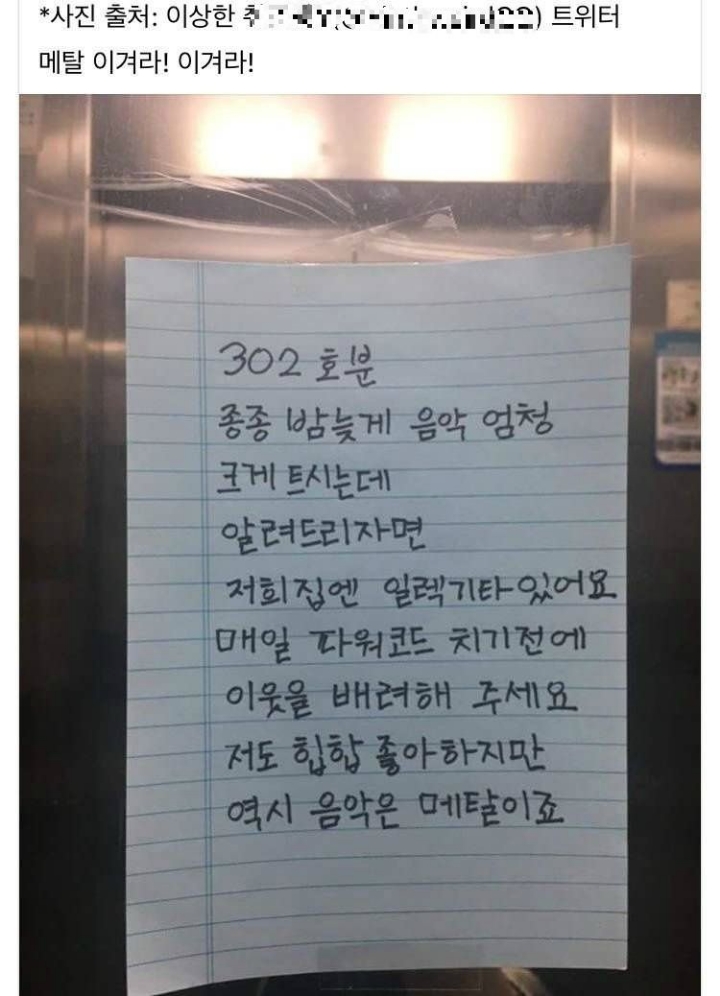 *사진 출처: 이상한 트위터
메탈 이겨라! 이겨라!
302호분
종종 밤늦게 음악 엄청
크게 트시는데
알려드리자면
저희집엔 일렉기타있어요
매일 파워코드 치기전에
이웃을 배려해 주세요
저도 힙합 좋아하지만
역시 음악은 메탈이죠